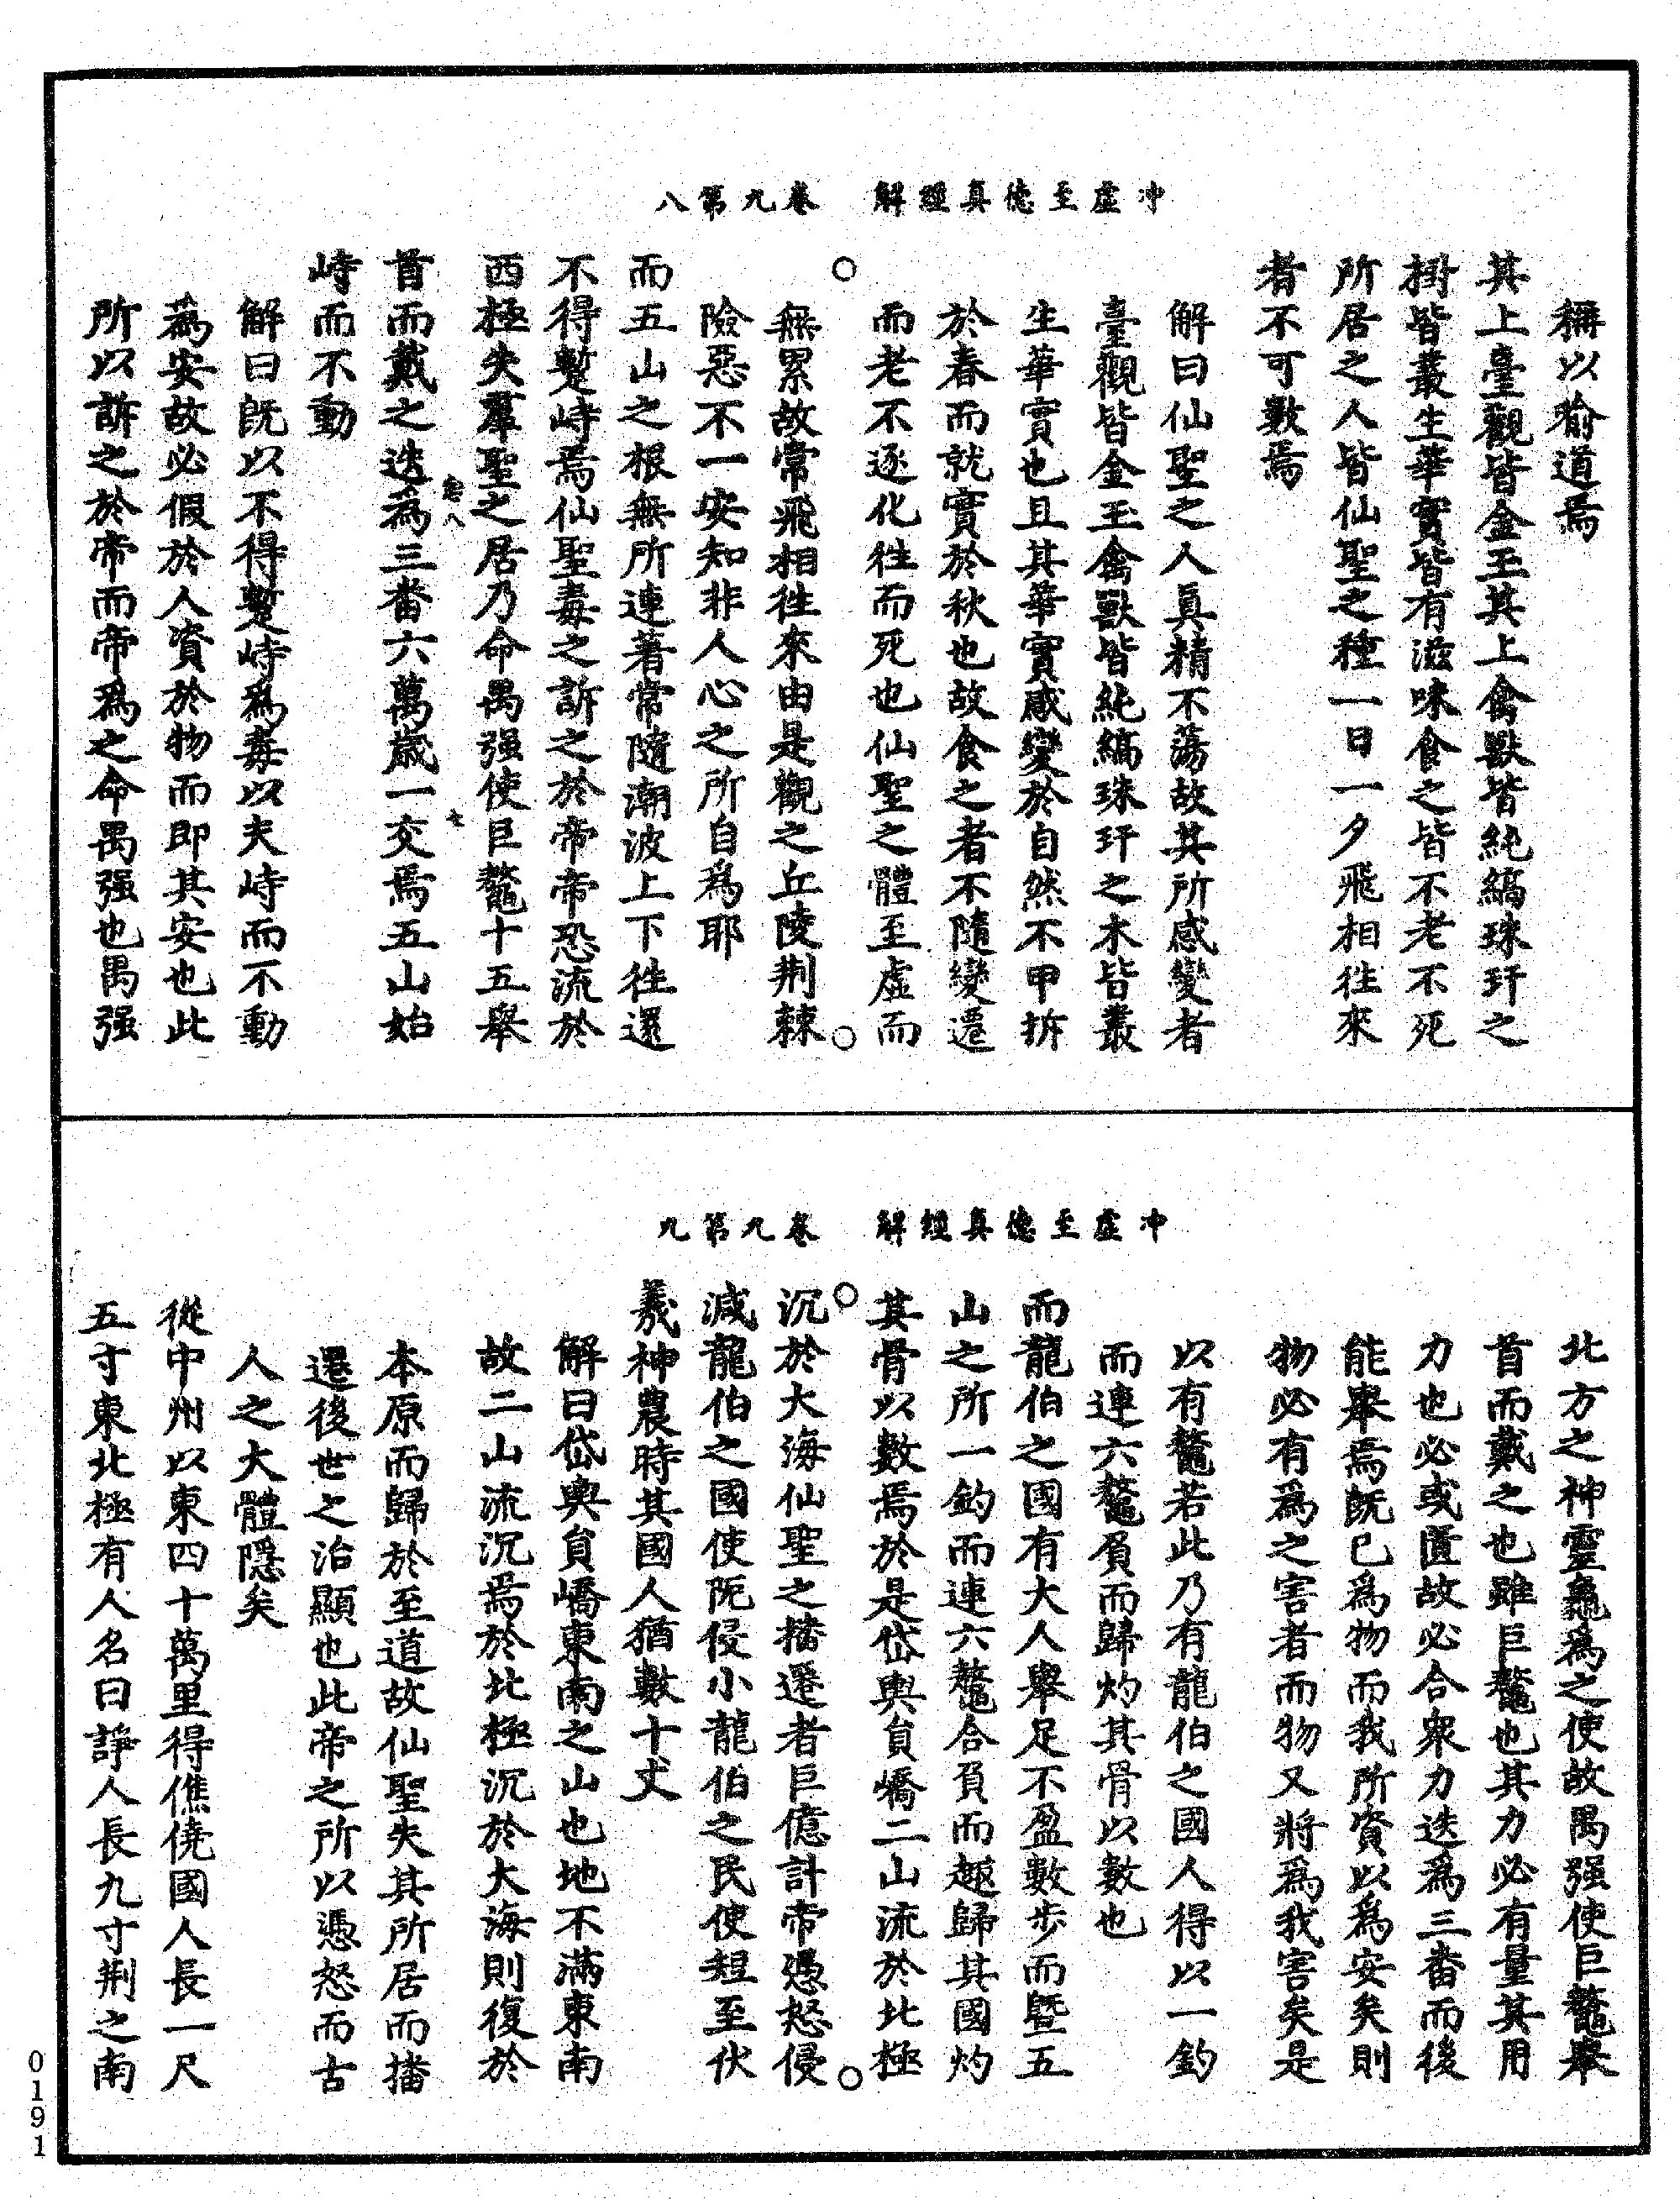 冲虛至德真經解　卷九第八
稱以喻道焉
其上臺觀皆金玉其上禽獸皆純縞珠玕之
樹皆叢生華實皆有滋味食之皆不老不死
所居之人皆仙聖之種一日一夕飛相徃來
者不可數焉
解曰仙聖之人真精不蕩故其所感變者
臺觀皆金玉禽獸皆純縞珠玕之木皆叢
生華實也且其華實感變於自然不甲拆
於春而就實於秋也故食之者不隨變遷
而老不逐化徃而死也仙聖之體至虛而
無累故常飛相徃來由是觀之丘陵荆棘
險惡不一安知非人心之所自爲耶
而五山之根無所連著常隨潮波上下徃還
不得蹔峙焉仙聖毒之訴之於帝帝恐流於
西極失羣聖之居乃命禺强使巨鼇十五舉
首而戴之迭爲三畨六萬歲一交焉五山始
峙而不動
解曰旣以不得蹔峙爲毒以夫峙而不動
爲安故必假於人資於物而即其安也此
所以訴之於帝而帝爲之命禺强也禺强
冲虛至德真經解　卷九第九
北方之神靈龜爲之使故禺强使巨鼇舉
首而戴之也雖巨鼇也其力必有量其用
力也必或匱故必合衆力迭爲三畨而後
能舉焉旣已爲物而我所資以爲安矣則
物必有爲之害者而物又將爲我害矣是
以有鼇若此乃有龍伯之國人得以一釣
而連六鼇負而歸灼其骨以數也
而龍伯之國有大人舉足不盈數步而曁五
山之所一釣而連六鼇合負而趣歸其國灼
其骨以數焉於是岱輿負嶠二山流於北極
沉於大海仙聖之播遷者巨億計帝憑怒侵
減龍伯之國使阨侵小龍伯之民使短至伏
羲神農時其國人猶數十丈
解曰岱輿負嶠東南之山也地不滿東南
故二山流沉焉於北極沉於大海則復於
本原而歸於至道故仙聖失其所居而播
遷後世之治顯也此帝之所以憑怒而古
人之大體隱矣
從中州以東四十萬里得僬僥國人長一尺
五寸東北極有人名曰諍人長九寸荆之南
0191